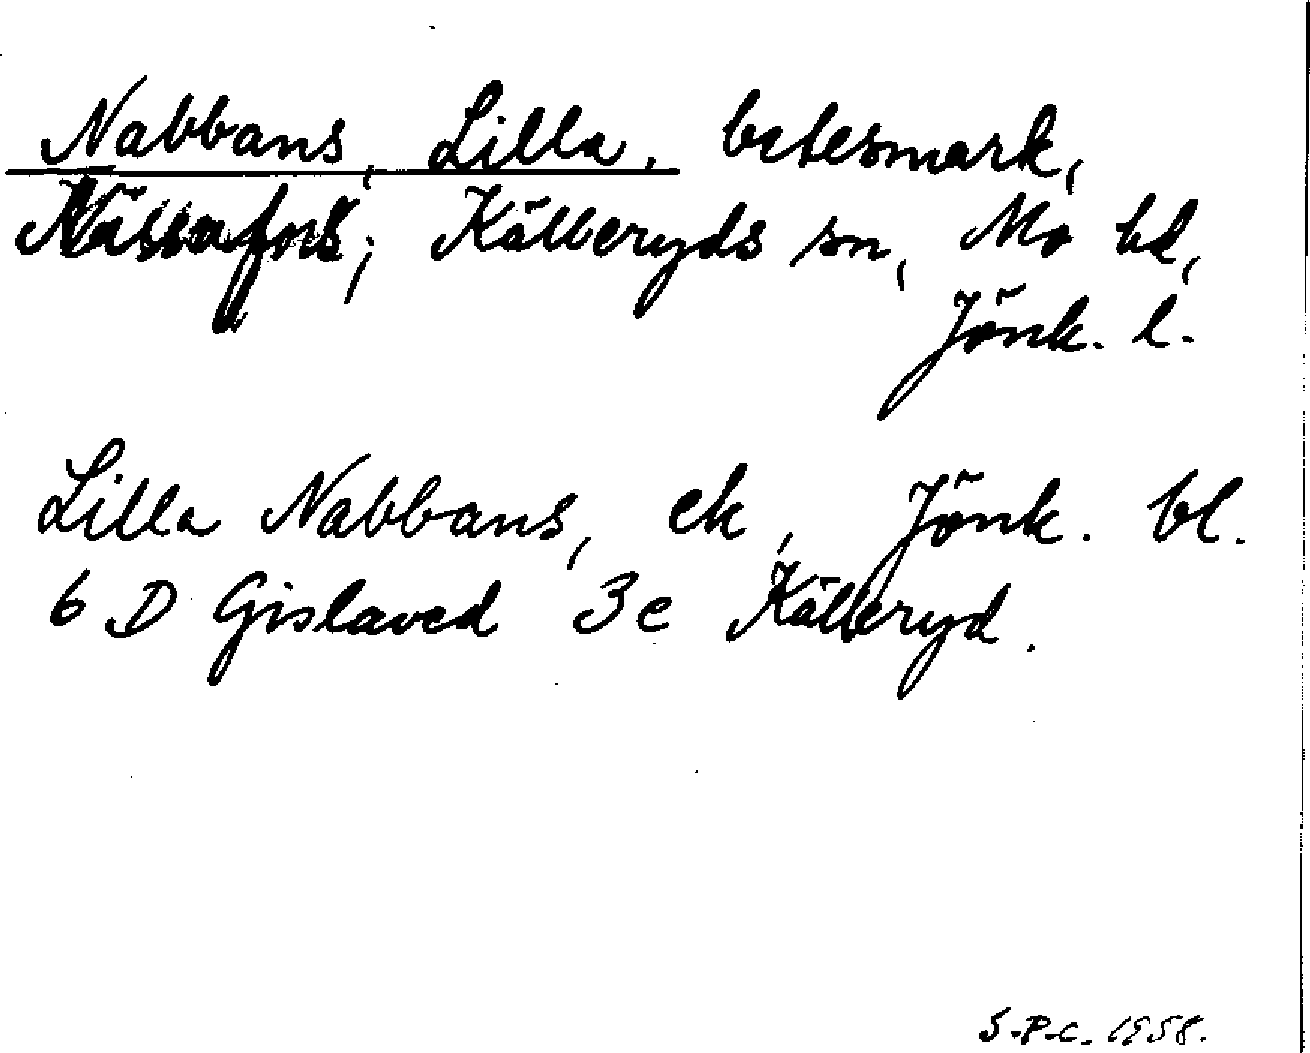 Nabbans, Lilla, betesmark,
Nässafors, Kålleryds sn, Mo hd,
Jönk. l.
Lilla Nabbans, ek, Jönk. bl.
6 D Gislaved 3e Kålleryd.
S.P.C. 1958.